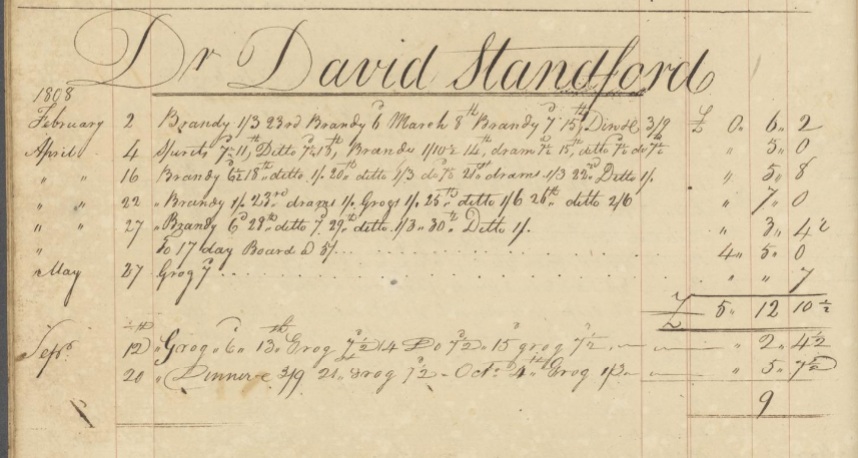 Dr David Standford
1808
February 2 Brandy 1/3 23rd Brandy 6d March 8th Brandy 7d 15th Din 3/9 £ 0 " 6 " 2
April 4 Spirits 7½ 11th Ditto 7½ 13th, Brandy 1/10½ 14th, dram 7½ 15th, ditto 7½ do 7½ " 5 " 0
" " 16 Brandy 6½ 18th ditto 1/. 20th ditto 1/3 do 7½ 21st drams 1/3 22d Ditto 1/. " 5 " 8
" " 22 " Brandy 1/. 23rd drams 1/. Grogs 1/. 25th ditto 1/6 26th ditto 2/6 " 7 " 0
" " 27 " Brandy 6d 28th ditto 7d 29th ditto 1/3 " 30th Ditto 1/. " 3 " 4½
" To 17 day Board @ 5/ . . . 4 " 5 " 0
May 27 Grog 7d . . . " " 7
£ 5 " 12 10½
Sepr 12 " Grog " 6d " 13th Grog 7½ 14 Do 7½ " 15 grog 7½ " 2 " 4½
" " 20 " Dinner 3/9 21 " Grog 7½ - Octr 4th Grog 1/3 " 5 " 7½
9